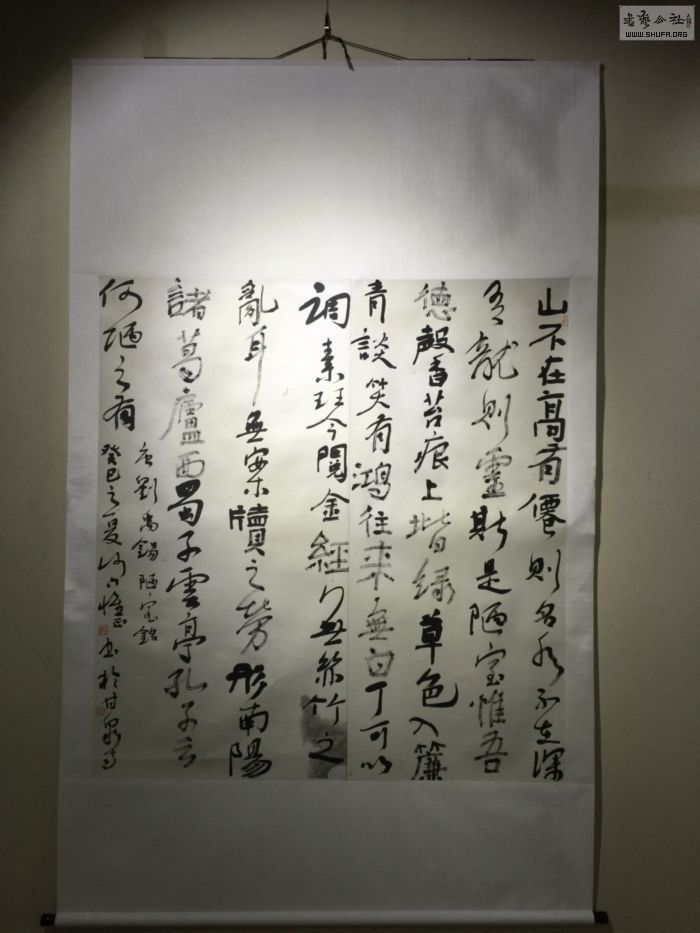 山不在高有僊則名水不在深
有龍則靈斯是陋室惟吾
德馨香苔痕上堦綠草色入簾
青談笑有鴻往來無白丁可以
調素琴今閱金經無絲竹之
亂耳無案牘之勞形南陽
諸葛廬西蜀子雲亭孔子云
何陋之有
唐劉禹錫陋室銘
癸巳之夏正書於甘泉
WWW.SHUFA.ORG